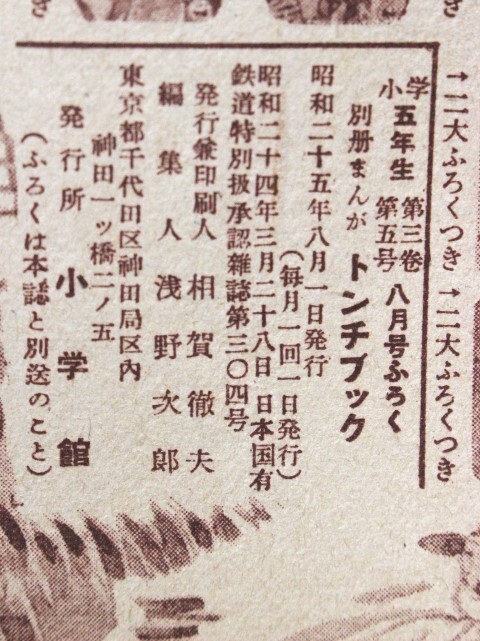 →二大ふろくつき→二大ふろくつき
小学五年生 第三巻第五号 八月号ふろく
別册まんが トンチブック
昭和二十五年八月一日発行
(毎月一回一日発行)
昭和二十四年三月二十八日 日本国有
鉄道特別扱承認雑誌第三〇四号
発行兼印刷人 相賀徹夫
編集人 浅野次郎
東京都千代田区神田局区內
神田一ッ橋二ノ五
発行所 小学館
(ふろくは本誌と別送のこと)